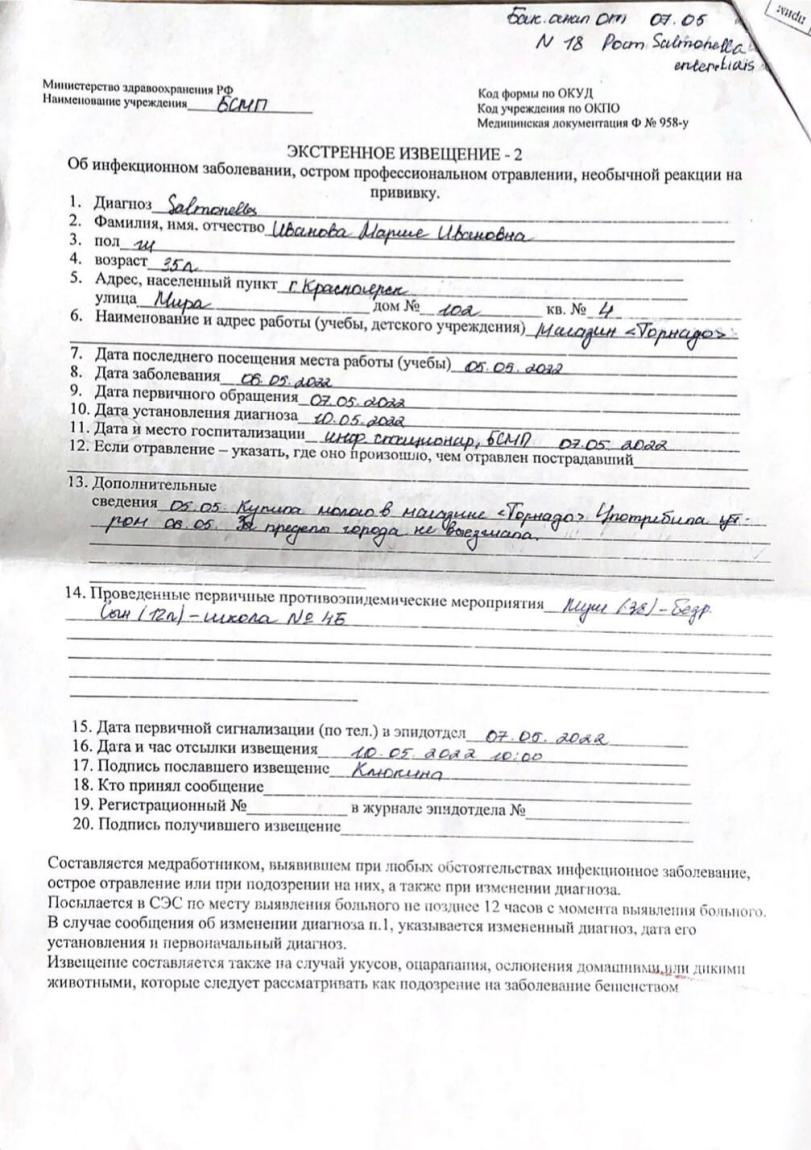 Бак. анал от 07.05
N 18 Рост Salmonella
entereliais
Министерство здравоохранения РФ
Наименование учреждения БСМП
Код формы по ОКУД
Код учреждения по ОКПО
Медицинская документация Ф № 958-у
ЭКСТРЕННОЕ ИЗВЕЩЕНИЕ - 2
Об инфекционном заболевании, остром профессиональном отравлении, необычной реакции на
прививку.
1. Диагноз Salmonella
2. Фамилия, имя, отчество Иванова Марие Ивановна
3. пол ж
4. возраст 35л
5. Адрес, населенный пункт г. Красноярск
улица Мира дом № 102 кв. № 4
6. Наименование и адрес работы (учебы, детского учреждения) Магазин «Торнадо»
7. Дата последнего посещения места работы (учебы) 05.05.2022
8. Дата заболевания 06.05.2022
9. Дата первичного обращения 07.05.2022
10. Дата установления диагноза 10.05.2022
11. Дата и место госпитализации инф. стационар, БСМП 07.05.2022
12. Если отравление – указать, где оно произошло, чем отравлен пострадавший
13. Дополнительные
сведения 05.05 Купила молоко в магазине «Торнадо» Употребила ут-
ром 06.05. За пределы города не выезжала.
14. Проведенные первичные противоэпидемические мероприятия Муж (38) – безр.
Сын (12л) – школа № 46
15. Дата первичной сигнализации (по тел.) в эпидотдел 07.05.2022
16. Дата и час отсылки извещения 10.05.2022 10:00
17. Подпись пославшего извещение Клюкина
18. Кто принял сообщение
19. Регистрационный № в журнале эпидотдела №
20. Подпись получившего извещение
Составляется медработником, выявившем при любых обстоятельствах инфекционное заболевание,
острое отравление или при подозрении на них, а также при изменении диагноза.
Посылается в СЭС по месту выявления больного не позднее 12 часов с момента выявления больного.
В случае сообщения об изменении диагноза п.1, указывается измененный диагноз, дата его
установления и первоначальный диагноз.
Извещение составляется также на случай укусов, оцарапания, ослюнения домашними или дикими
животными, которые следует рассматривать как подозрение на заболевание бешенством